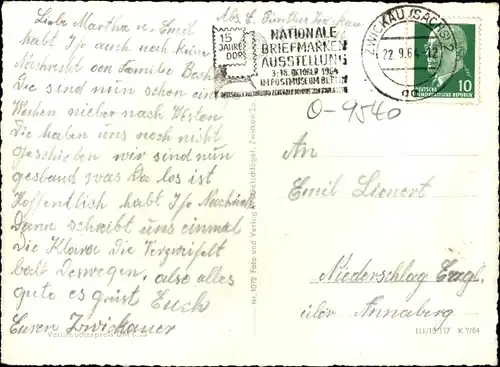 Liebe Martha u. Emil
habt Ihr auch noch keine
Nachricht von Familie
Die sind nun schon ein
Wochen rieber nach Westen
Die haben uns noch nicht
Geschieben wir sind nun
gesband was da los ist
Hoffendlich habt Ihr Nachricht
Dann schreibt uns einmal
Die Klara Die Verzweifelt
balt Deswegen, also alles
gute es grüst Euch
Euren Zwickauer
Abs. Günther Zwickau
15
JAHRE
DDR
NATIONALE
BRIEFMARKEN
AUSSTELLUNG
3.-18. OKTOBER 1964
IM POSTMUSEUM BERLIN
ZWICKAU (SACHS) 2
22.9.64
10
DEUTSCHE
DEMOKRATISCHE REPUBLIK
O-9540
An
Emil Lienert
Niederschlag Erzgb.
über Annaberg
Nr. 1078 Foto und Verlag
III/18/117 K 7/64